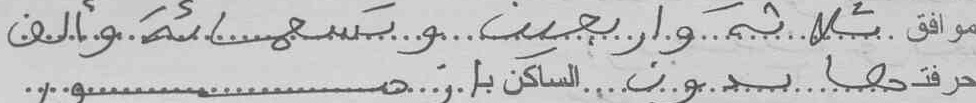 موافق ثلاثة وأربعين وتسعمائة وألف
حرفتها بدون الساكن ب